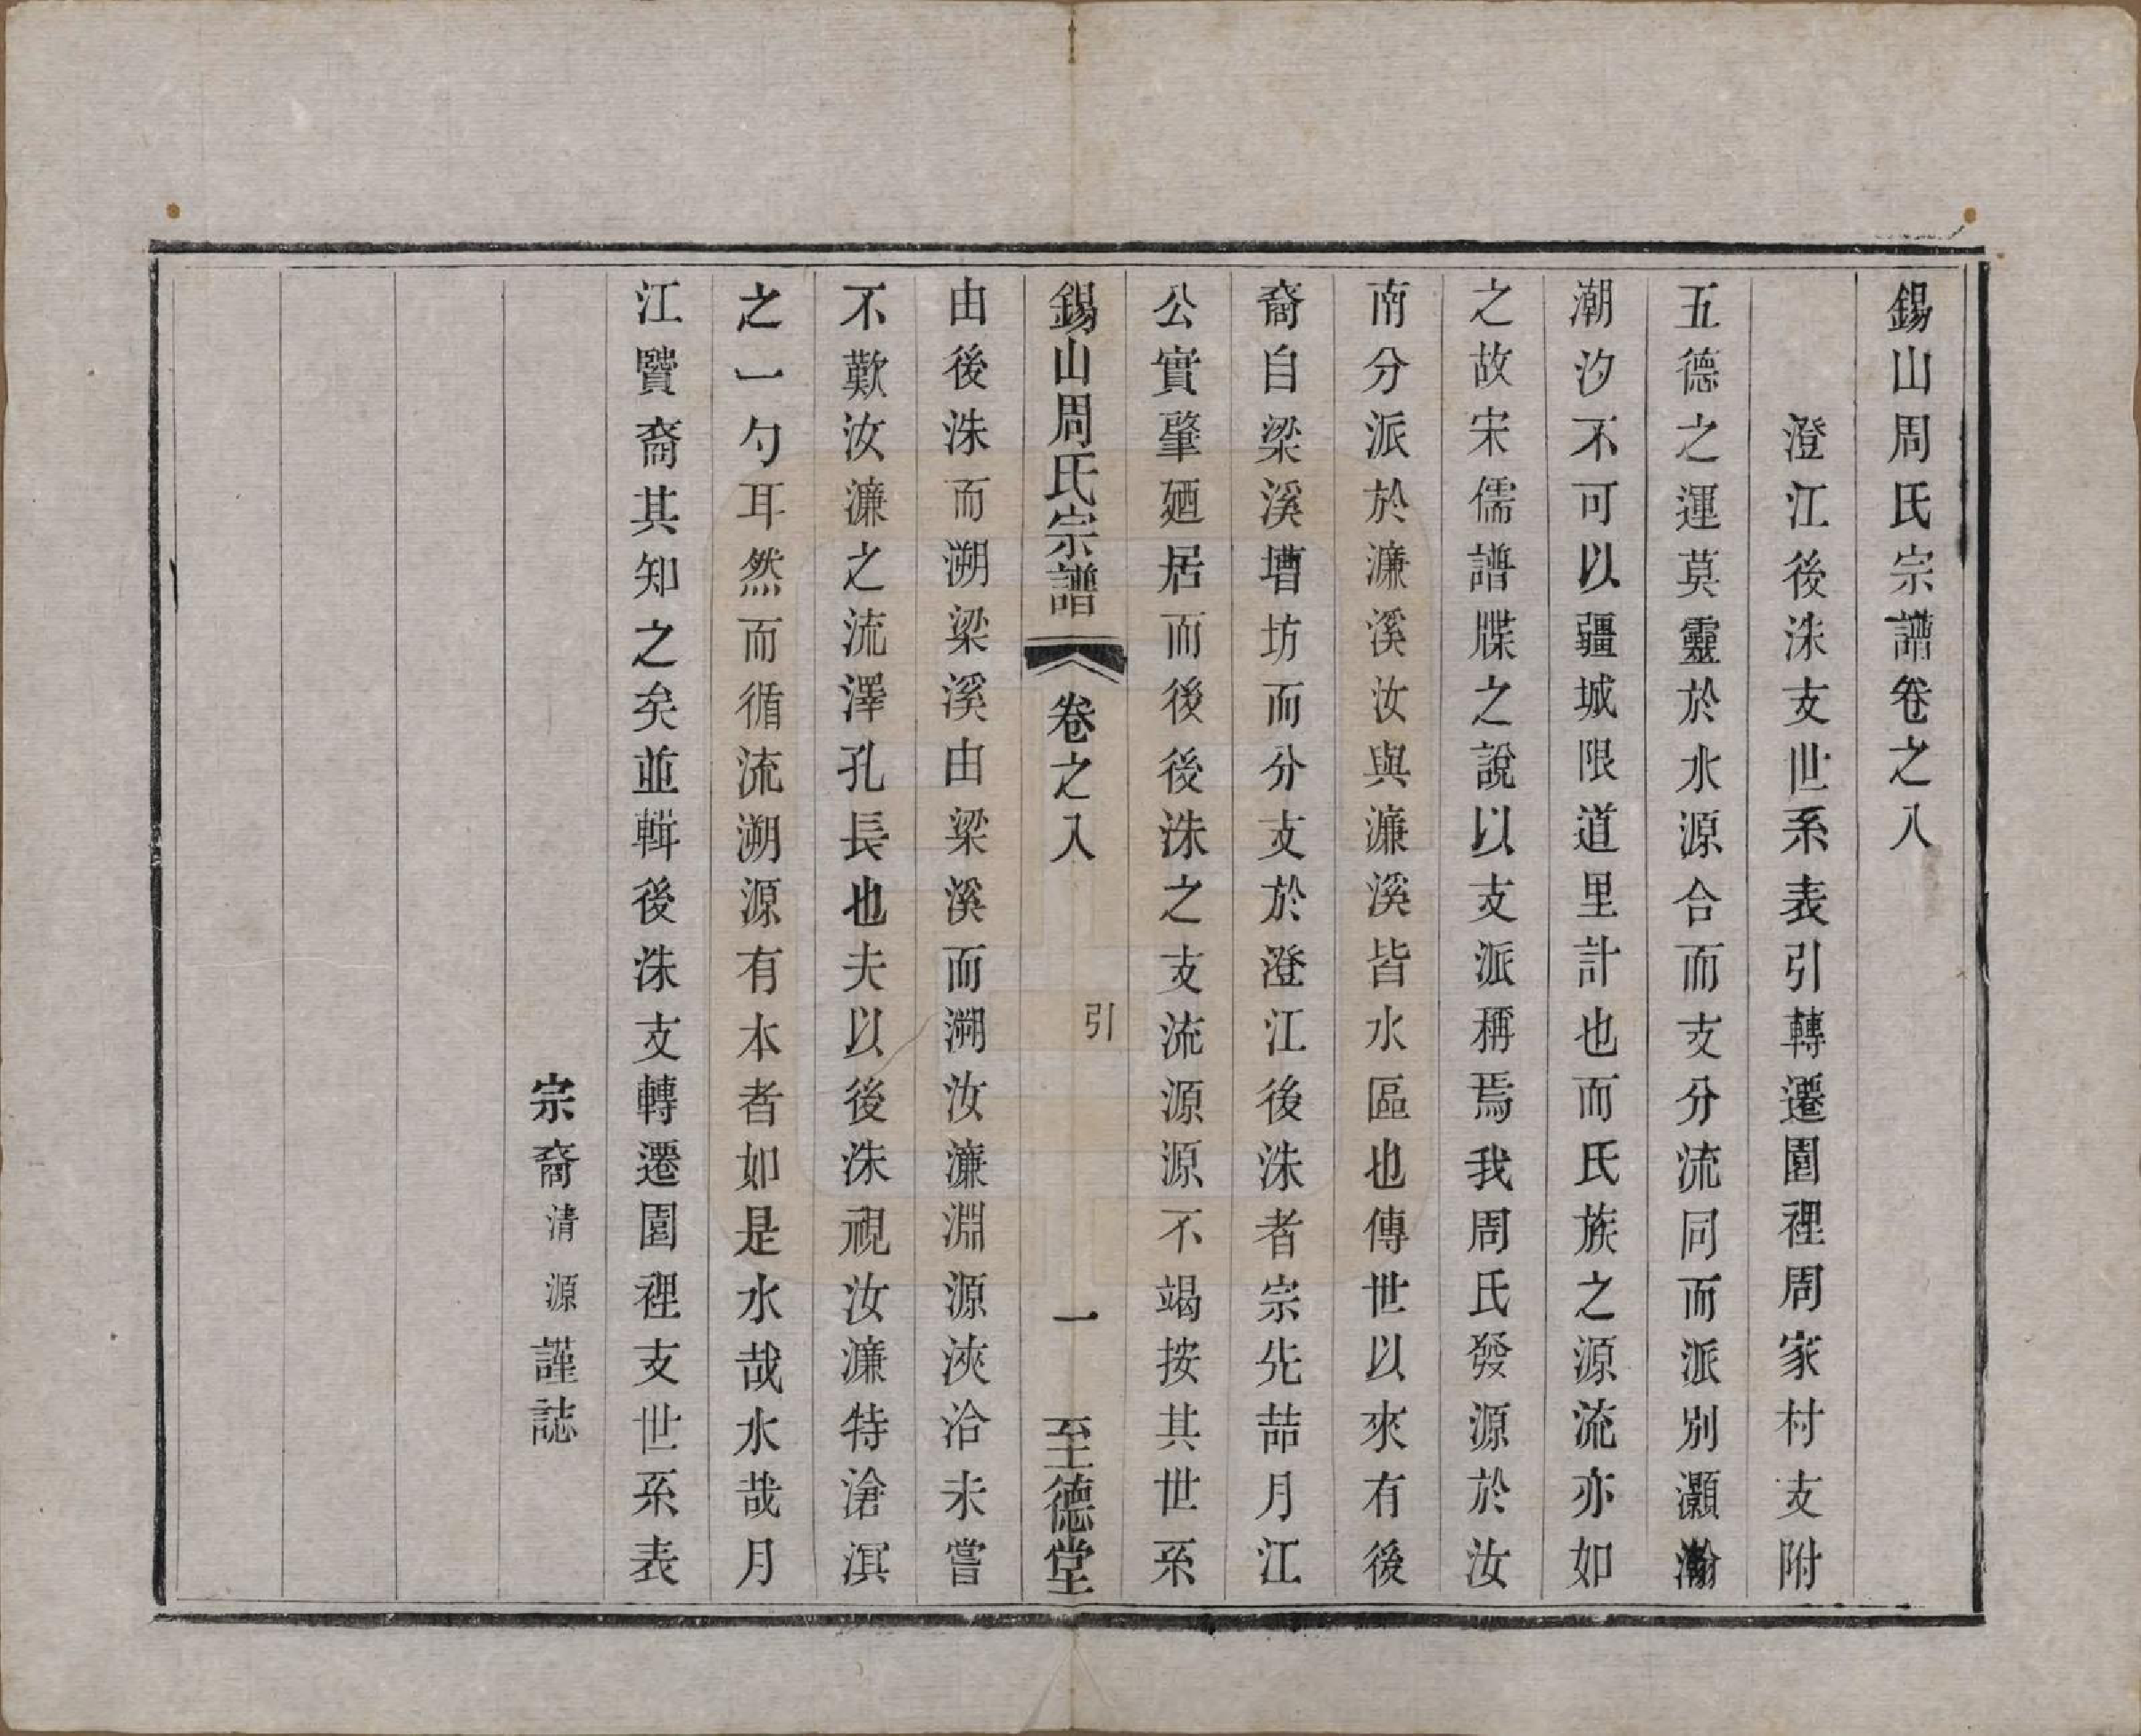 錫山周氏宗譜卷之八
澄江後洙支世系表引轉遷園裡周家村支附
五德之運莫靈於水源合而支分流同而派別灝瀚
潮汐不可以疆域限道里計也而氏族之源流亦如
之故宋儒譜牒之說以支派稱焉我周氏發源於汝
南分派於濂溪汝與濂溪皆水區也傳世以來有後
裔自梁溪塼坊而分支於澄江後洙者宗先喆月江
公實肇廼居而後後洙之支流源源不竭按其世系
錫山周氏宗譜 卷之八 引 一 至德堂
由後洙而溯梁溪由梁溪而溯汝濂淵源浹洽未嘗
不歎汝濂之流澤孔長也夫以後洙視汝濂特滄溟
之一勺耳然而循流溯源有本者如是水哉水哉月
江賢裔其知之矣並輯後洙支轉遷園裡支世系表
宗裔清源謹誌